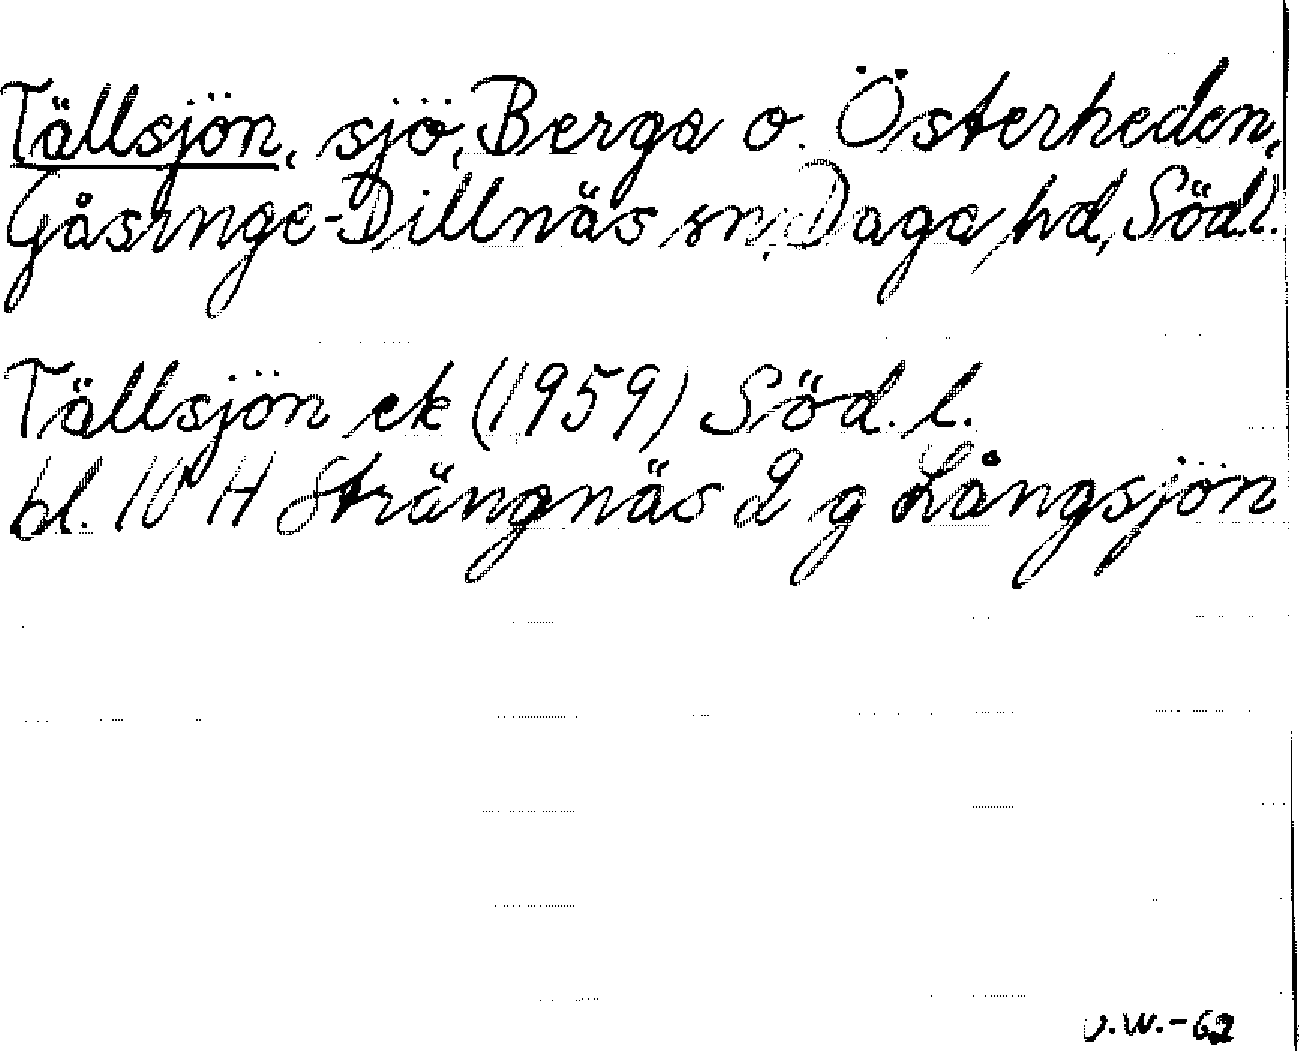 Tällsjön, sjö, Berga o. Österheden,
Gåsinge-Dillnäs sn, Daga hd, Söd.l.
Tällsjön ek (1959) Söd. l.
bl. 10 H Strängnäs 2 g Långsjön
V.W.-62